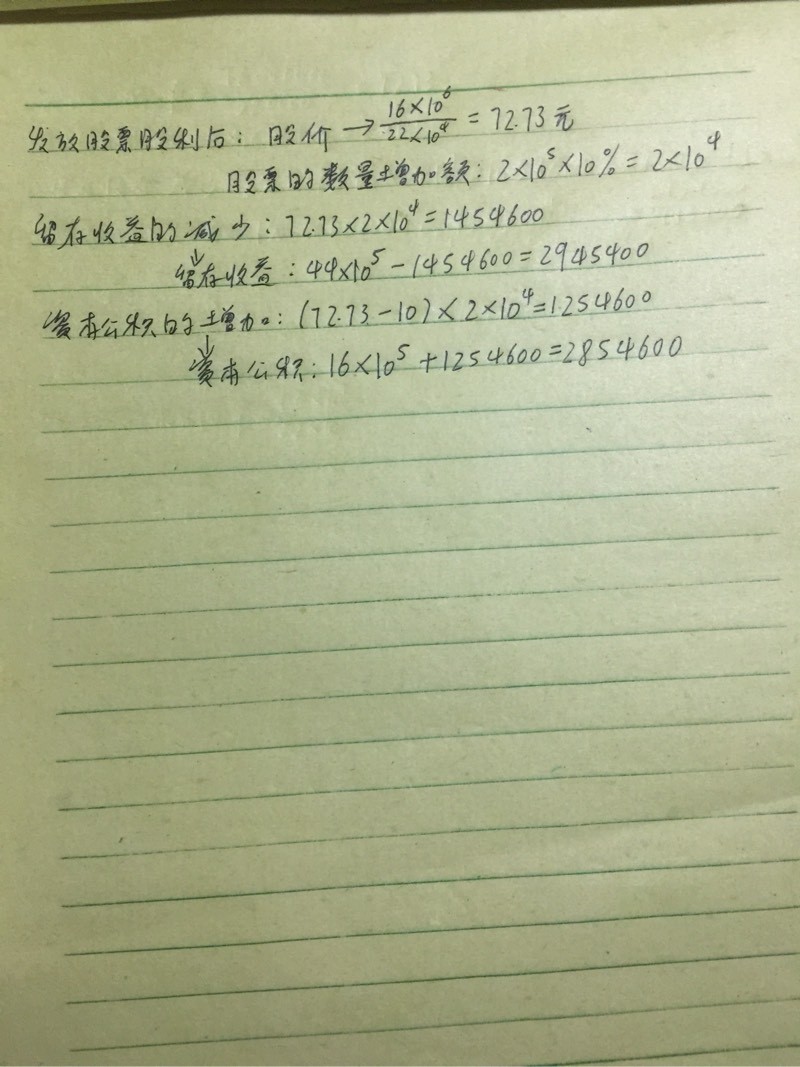 发放股票股利后：股价 → 16×10⁶/22×10⁴ = 72.73元
股票的数量增加额：2×10⁵×10% = 2×10⁴
留存收益的减少：72.73×2×10⁴=1454600
↓
留存收益：44×10⁵-1454600=2945400
资本公积的增加：(72.73-10)×2×10⁴=1254600
↓
资本公积：16×10⁵+1254600=2854600